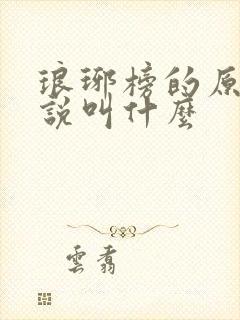 琅琊榜的原
說叫什麼
雲翥